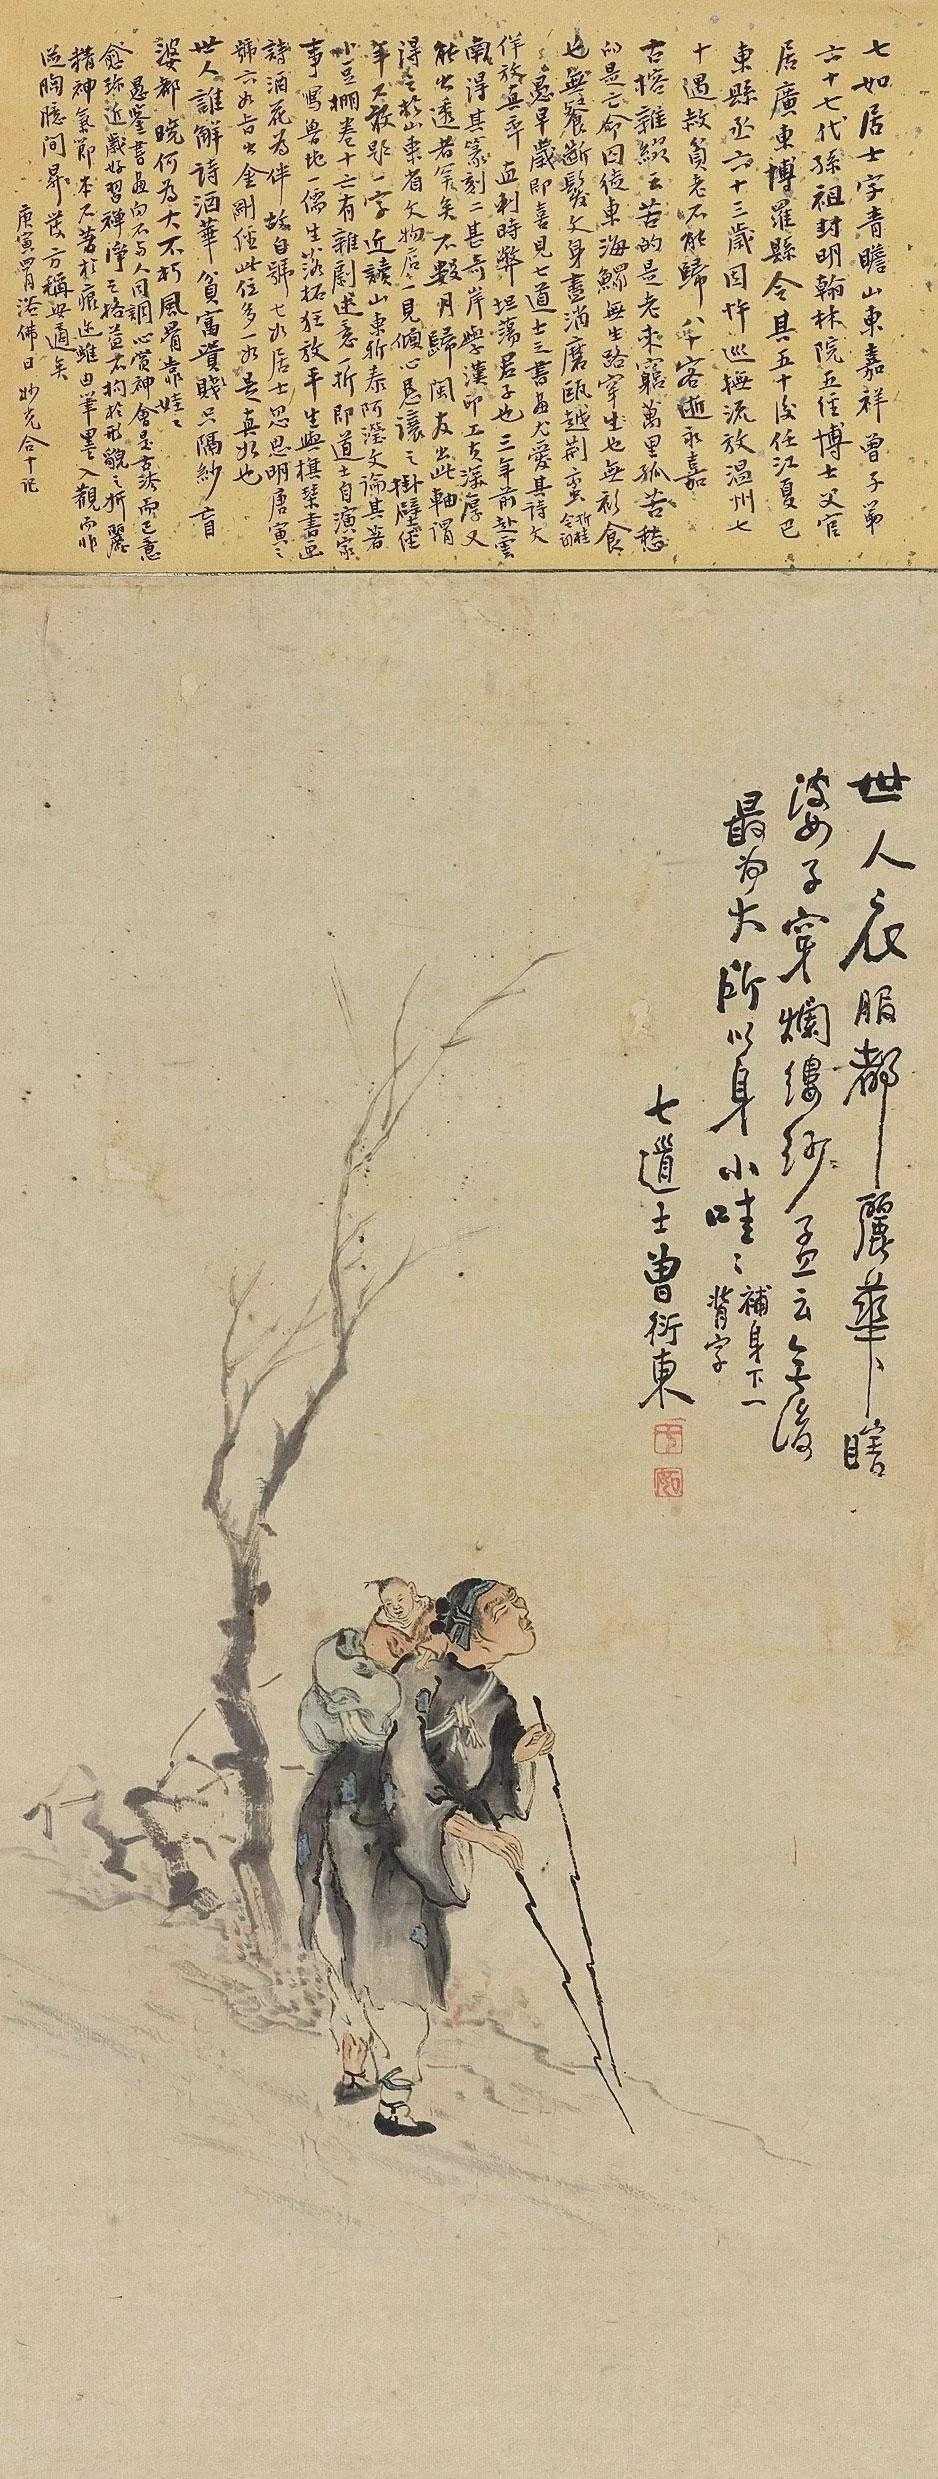 七如居士字青瞻山東嘉祥曾子第
六十七代孫祖封明翰林院五經博士父官
居廣東博羅縣令其五十後任江夏巴
東縣丞六十三歲因忤巡撫流放温州七
十遇赦貧老不能歸八十客逝永嘉
古榕雜綴云苦的是老來窮萬里孤苦愁
的是亡命囚徒東海鰥無生路窄生也無衫食
也無餐斷髮文身盡消磨甌越荆蠻
愚早歲即喜見七道士三書畫尤愛其詩文
作放真平直刺時弊坦蕩君子也三年前赴雲
南得其篆刻二甚奇岸學漢印工夫深厚又
能出透者笑矣不數月歸閩友出此軸謂
得之於山東省文物店一見傾心恳讓之掛壁經
年不敢題一字近讀山東新泰阿瀅文論其著
小豆棚卷十六有雜劇述意一折即道士自演家
事寫魯地一儒生落拓狂放平生與棋琴書画
詩酒花為伴故自號七如居士忽思明唐寅之
號六如占出金剛經此位多一如是真如也
世人誰解詩酒華貧富貴賤只隔紗盲
婆都曉何為大不朽風骨靠娃娃
愚鑒書畫向不与人同調心賞神會是古法而已意
愈近歲好習禪淨之格益不拘於形貌之折麗
精神氣節本不著於痕迹雖由筆墨入觀而非
從胸臆間昇發方稱無適矣
庚寅胃浴佛日妙光合十记
世人衣服都麗華瞎
婆子穿爛縷紗孟云無後
最為大所以身小哇〻
補身下一
背字
七道士曾衍東